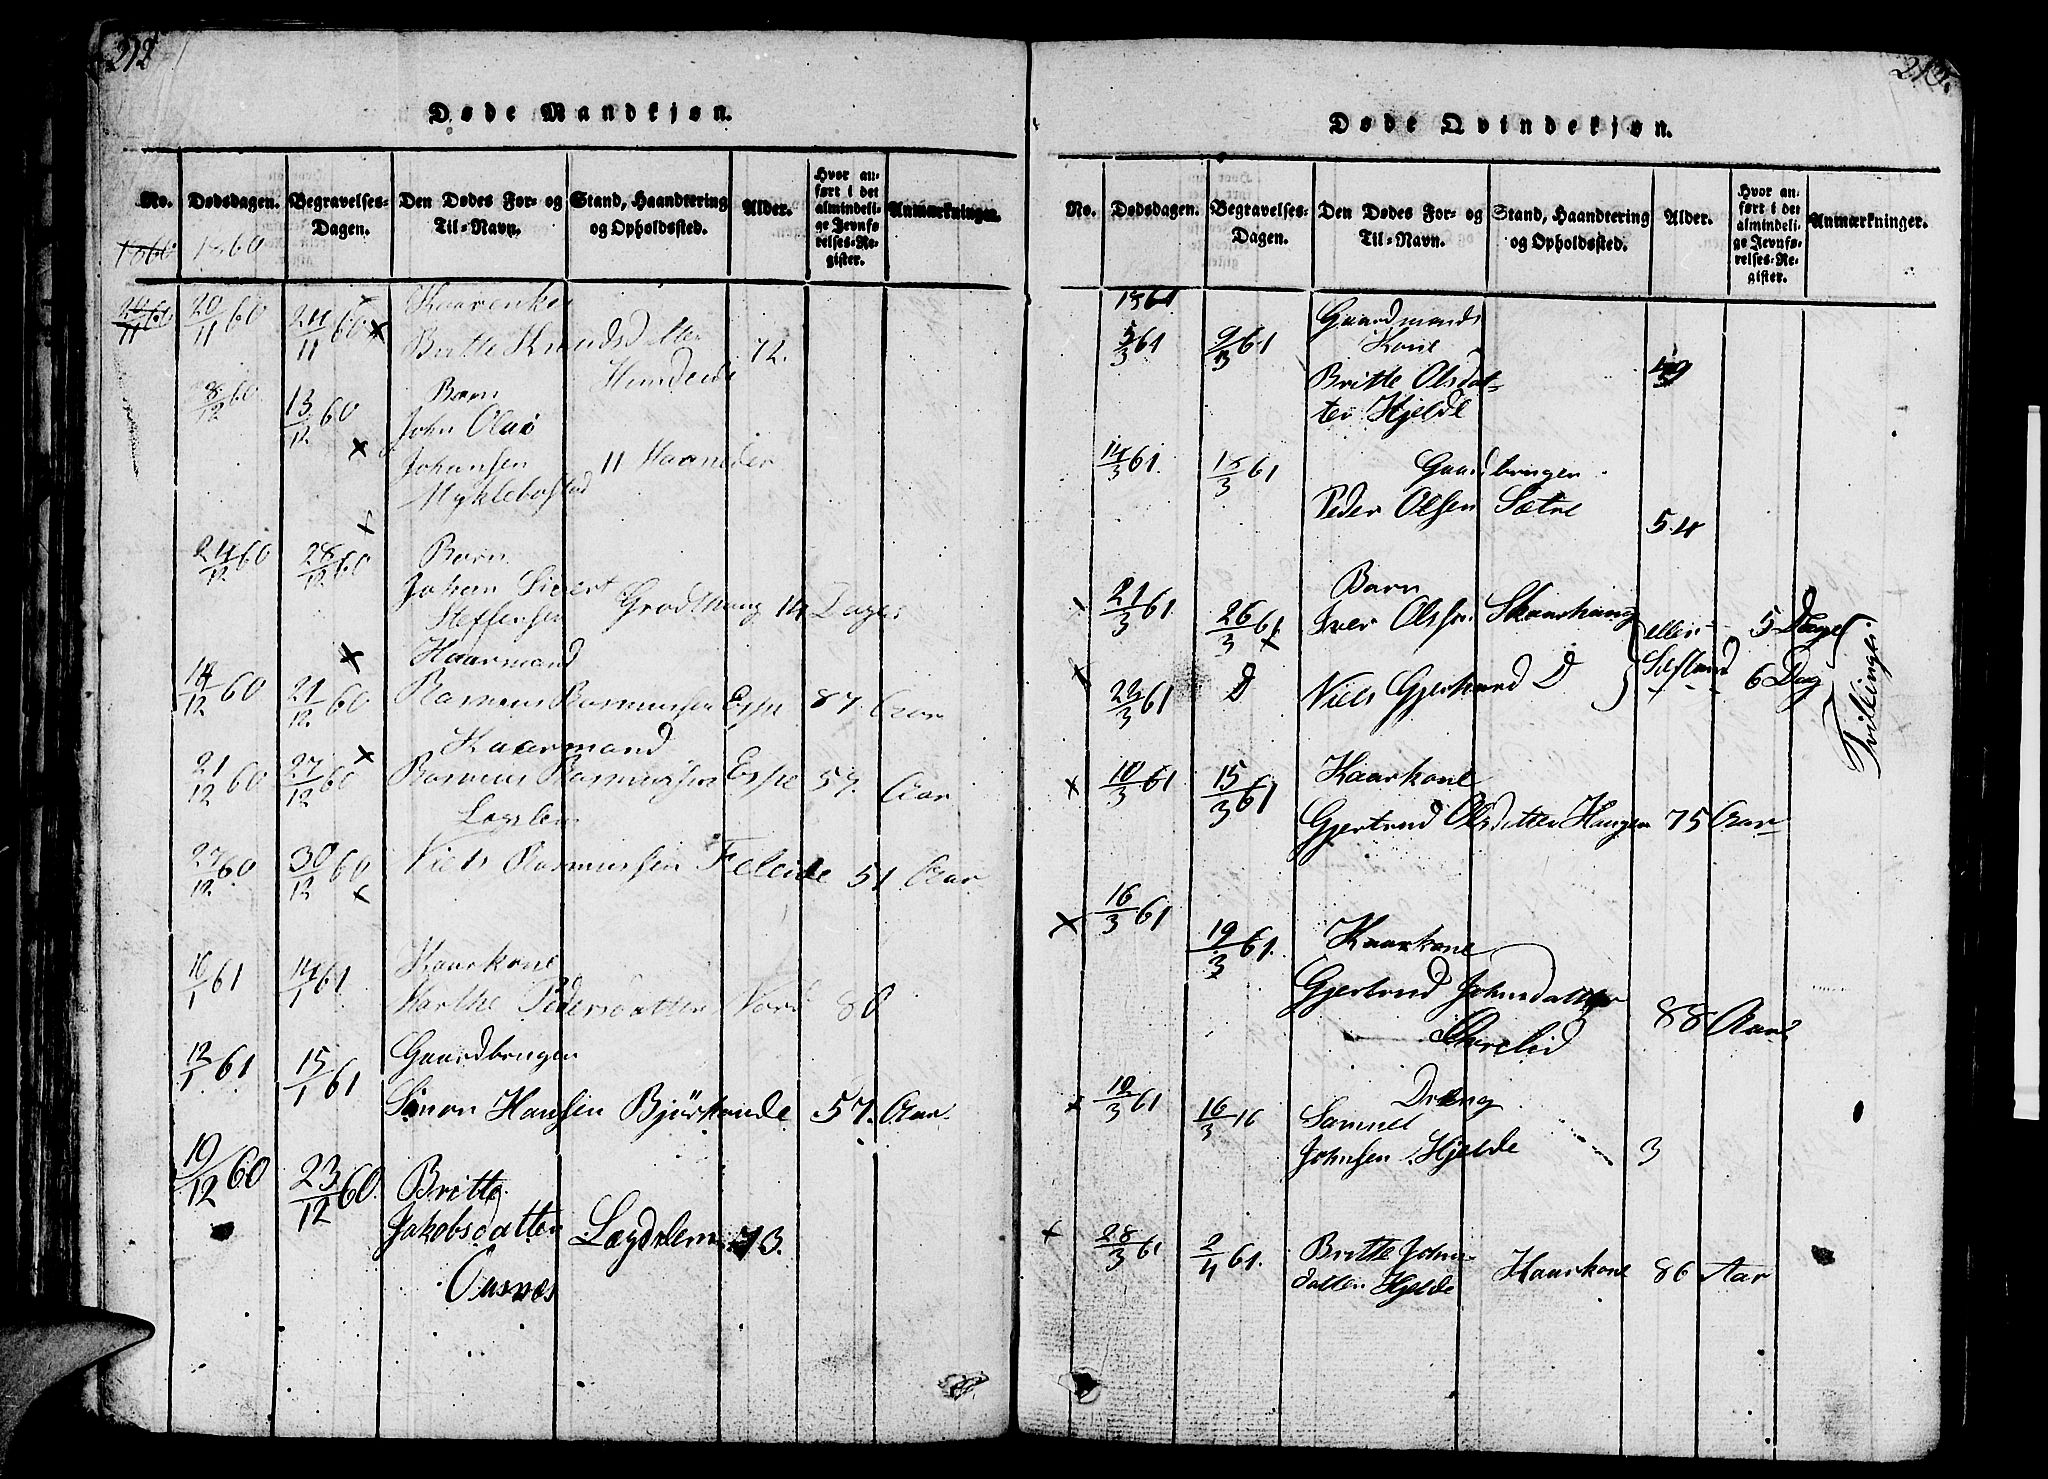 212
Døde Mandkjøn.
No.
Dødsdagen.
Begravelses-Dagen.
Den Dødes For- og Til-Navn.
Stand, Haandtering og Opholdssted.
Alder.
Hvor anført i det almindelige Jevnførelses-Register.
Anmærkninger.
1860 1860
20/11 60 24/11 60
Britte Knudsdatter 72.
8/12 60 13/12 60 Barn
John Olai
Johansen 11 Maaneder
Myklebostad
24/12 60 28/12 60 Barn
Johan Sivert
Steffensen Grodthaug 14 Dager
Kaarmand
14/12 60 21/12 60 Rasmus Rasmussen Espe 87 Aar
Kaarmand
21/12 60 27/12 60 Rasmus Rasmussen Espe 57. Aar
Lægslem
27/12 60 30/12 60 Niels Rasmussen Fleide 51 Aar
Kaarkone
10/1 61 14/1 61 Marthe Pedersdatter Nord 80
12/1 61 15/1 61 Gaardbruger
Simon Hansen Bjørstende 57. Aar
19/12 60 23/12 60. Britte
Jakobsdatter Lægdslem 73.
Aasnæs
213.
Døde Qvindekjøn.
No.
Dødsdagen.
Begravelses-Dagen.
Den Dødes For- og Til-Navn.
Stand, Haandtering og Opholdssted.
Alder.
Hvor anført i det almindelige Jevnførelses-Register.
Anmærkninger.
1861
5/3 61 9/3 61 Gaardmands
Kone
Britte Olsdat-
ter Hjelde 49
14/3 61. 18/3 61 Gaardbruger
Peder Olsen Sætre 54
21/3 61 26/3 61. Barn
Iver Olsen Skaarhaug eller 5 Dage
Sætland
22/3 61 D Niels Gjerhard D 6 Dag
Tvillinger
10/3 61 15/3 61 Kaarkone
Gjertrud Olsdatter Haugen 75 Aar
16/3 61 19/3 61. Kaarkone
Gjertrud Johnsdatter 88 Aar
10/3 61 16/3 16 Dreng
Samuel
Johnsen Hjelde 3
28/3 61 2/4 61. Britte Johns-
datter Hjelde Kaarkone 86 Aar